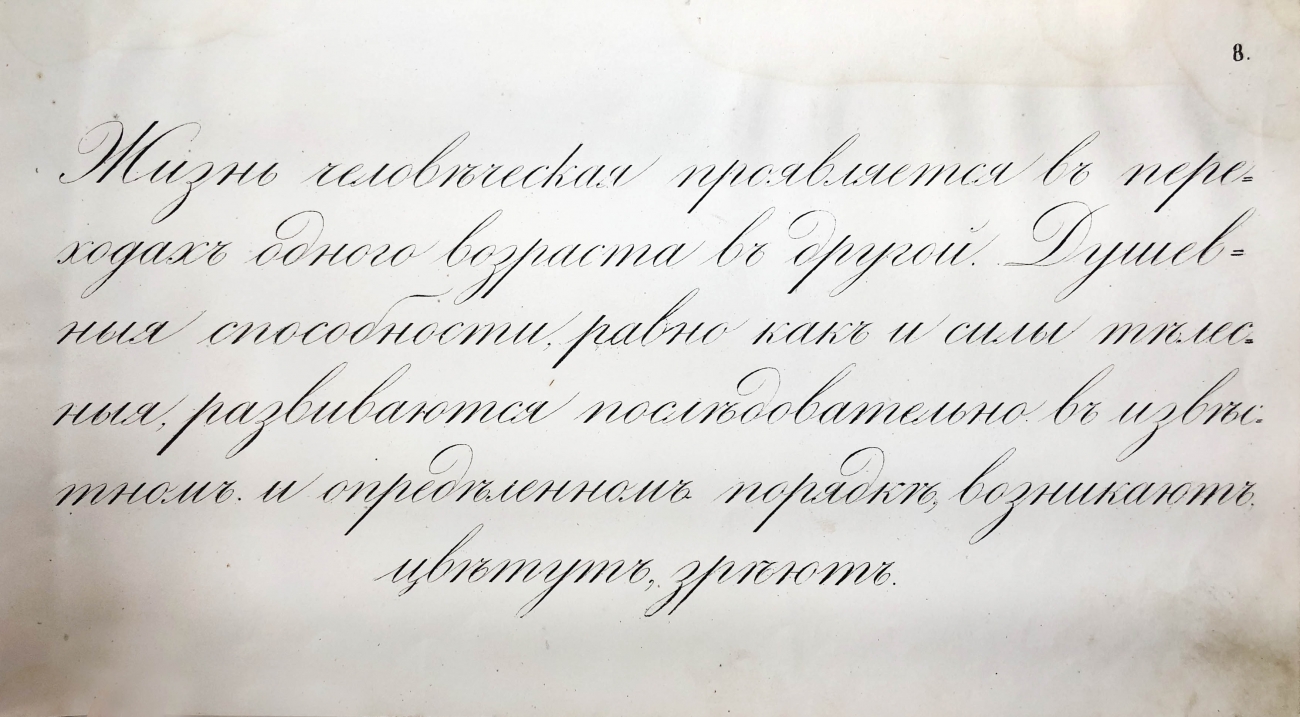 8.
Жизнь человѣческая проявляется въ пере=
ходахъ одного возраста въ другой. Душев=
ныя способности, равно какъ и силы тѣлес=
ныя, развиваются послѣдовательно въ извѣс=
тномъ и опредѣленномъ порядкѣ, возникаютъ,
цвѣтутъ, зрѣютъ.